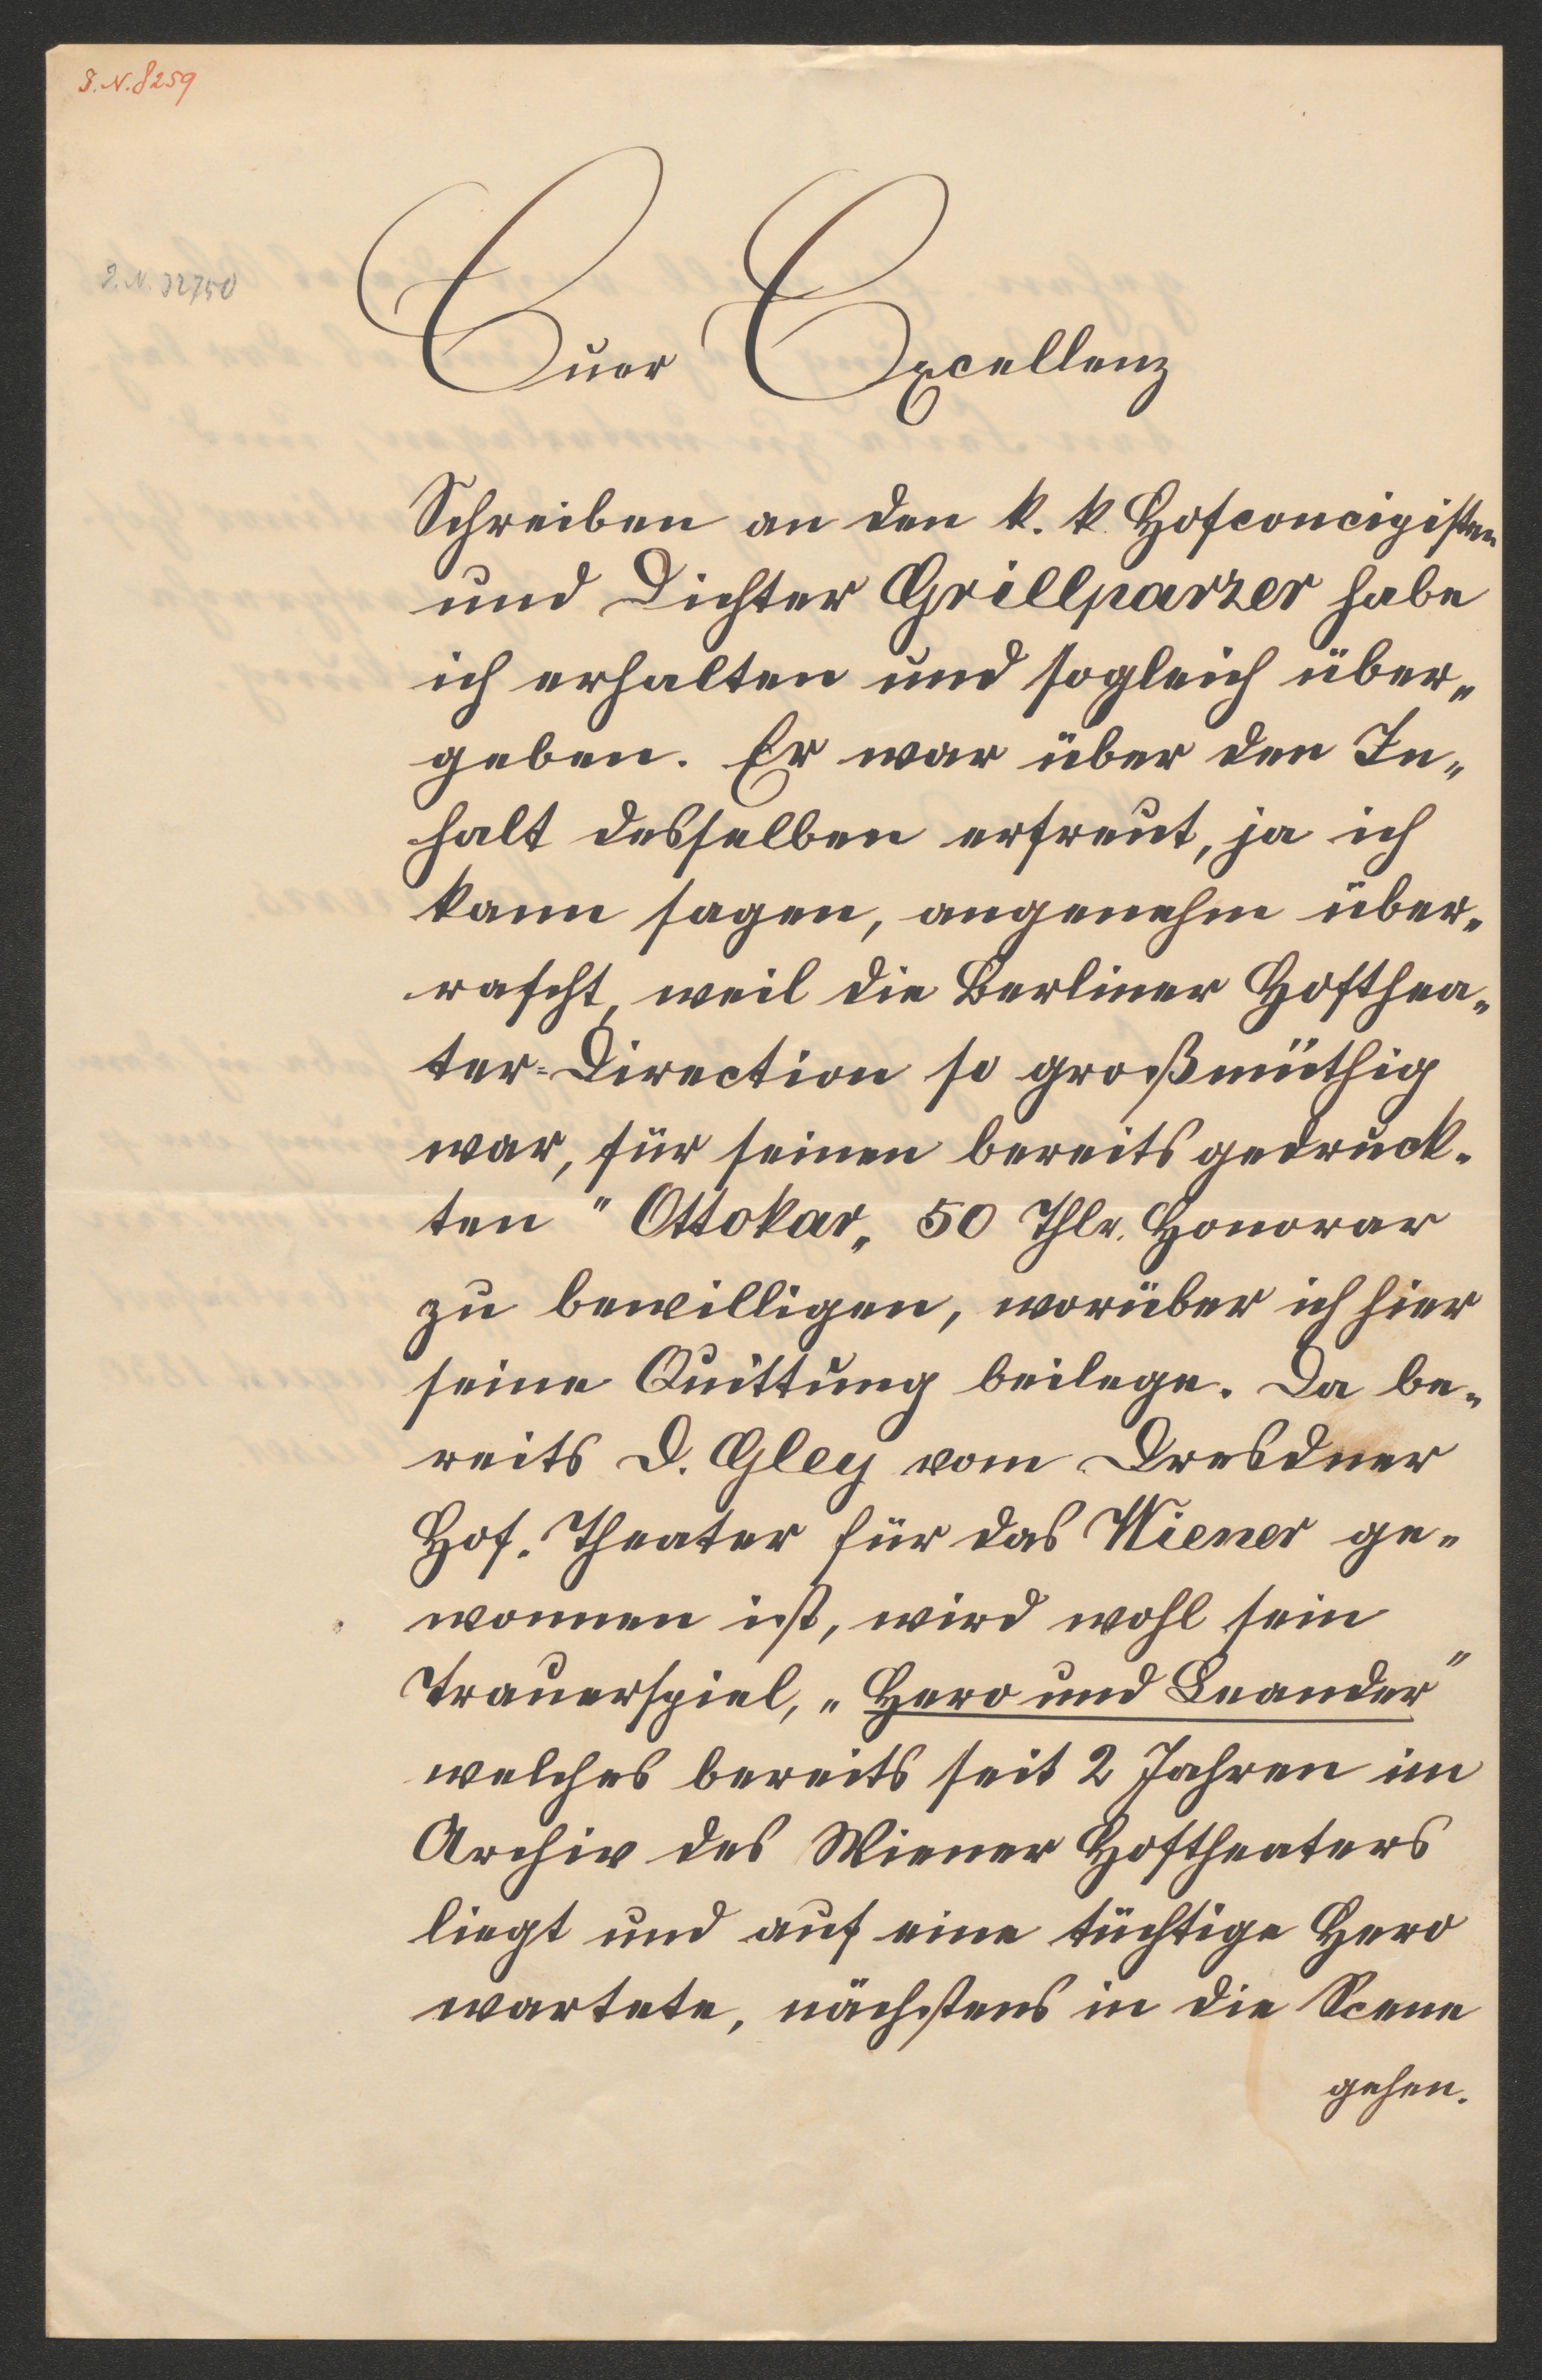 J.N. 8259
J.N. 32750
Euer Excellenz
Schreiben an den k. k. Hofconcipisten
und Dichter Grillparzer habe
ich erhalten und sogleich über„
geben. Er war über den In„
halt desselben erfreut, ja ich
kann sagen, angenehm über„
rascht, weil die Berliner Hofthea„
ter=Direction so großmüthig
war, für seinen bereits gedruck„
ten "Ottokar„ 50 Thlr. Honorar
zu bewilligen, worüber ich hier
seine Quittung beilege. Da be„
reits D. Gley vom Dresdner
Hof. Theater für das Wiener ge„
wonnen ist, wird wohl sein
Trauerspiel, „Hero und Leander"
welches bereits seit 2 Jahren im
Archiv des Wiener Hoftheaters
liegt und auf eine tüchtige Hero
wartete, nächstens in die Scene
gehen.